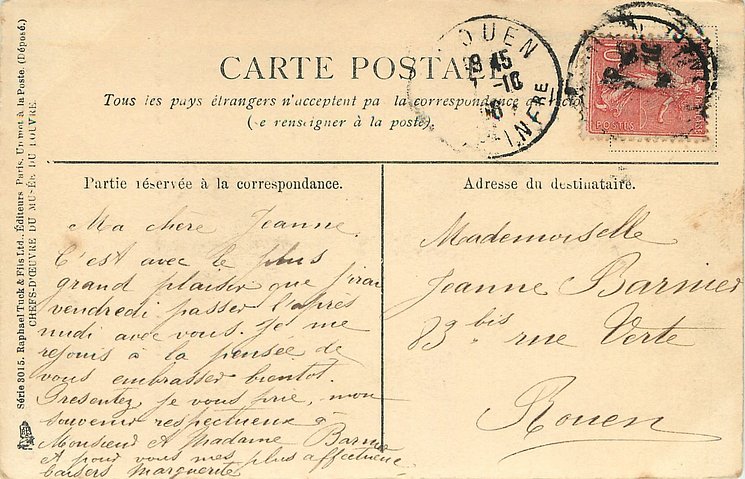 CARTE POSTALE
Tous les pays étrangers n'acceptent pa la correspondance au
(se renseigner à la poste).
OUEN
INFRE
POSTES
10
Partie réservée à la correspondance.
Ma chere Jeanne.
C'est avec le plus
grand plaisir que j'irai
vendredi passer l'apres
midi avec vous. Je me
rejouis à la pensée de
vous embrasser bientot.
Presentez je vous prie, mon
souvenir respectueux à
Monsieur et Madame Barnier
et pour vous mes plus affectueux
baisers Marguerite
Adresse du destinataire.
Mademoiselle
Jeanne Barnier
89 bis rue Verte
Rouen
Série 3015. Raphael Tuck & Fils Ltd., Éditeurs Paris. Un mot à la Poste. (Déposé.)
CHEFS-D'ŒUVRE DU MUSÉE DU LOUVRE.